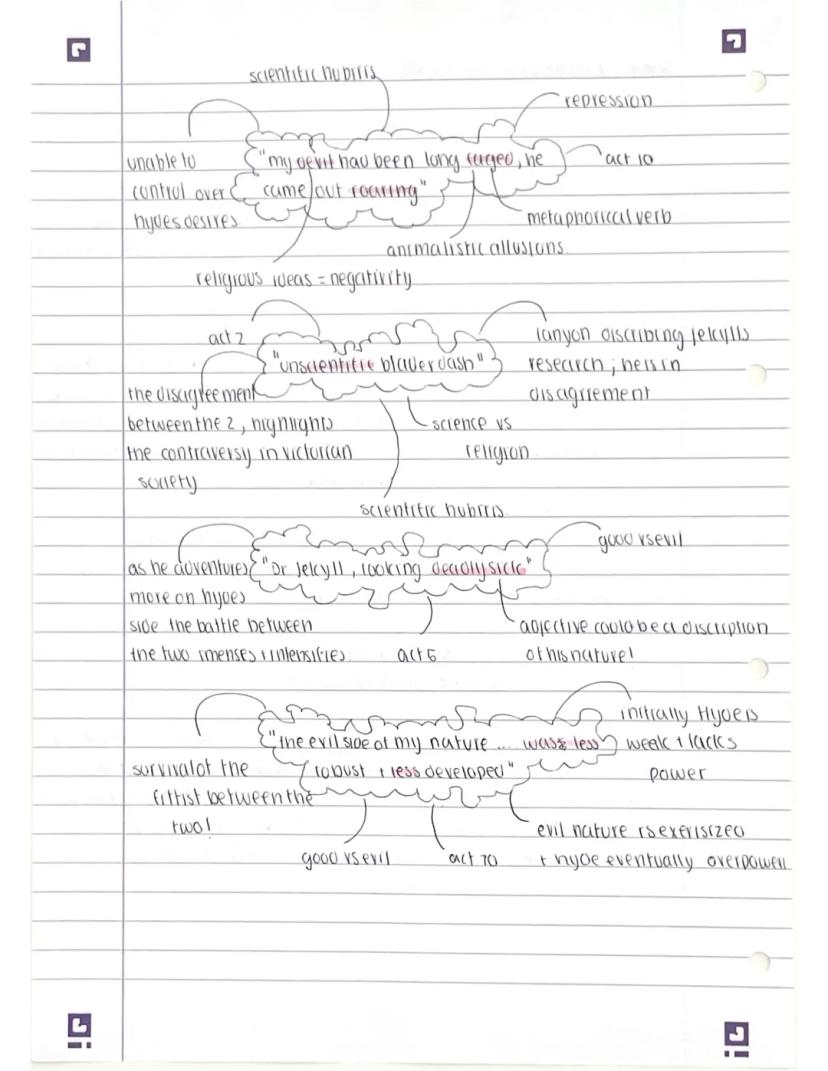 scientific hubris
repression
unable to
control over
hydes desires
"my devil had been long caged, he
came out roaring"
act 10
metaphorical verb
animalistic allusions
religious ideas = negativity
act 2
"unscientific balderdash"
lanyon discribing jekylls
research ; he is in
disagriement
the disagreement
between the 2, highlights
the contraversy in victorian
society
science vs
religion
scientific hubris
good vs evil
as he adventures
more on hydes
side the battle between
the two
"Dr Jekyll, looking deadly sick"
act 6
adjective could be a discription
of his nature!
initially Hyde is
weak + lacks
power
"the evil side of my nature ... was less
robust + less developed"
survival of the
fittist between the
two!
good vs evil
act 10
evil nature is exerisized
+ hyde eventually overpower